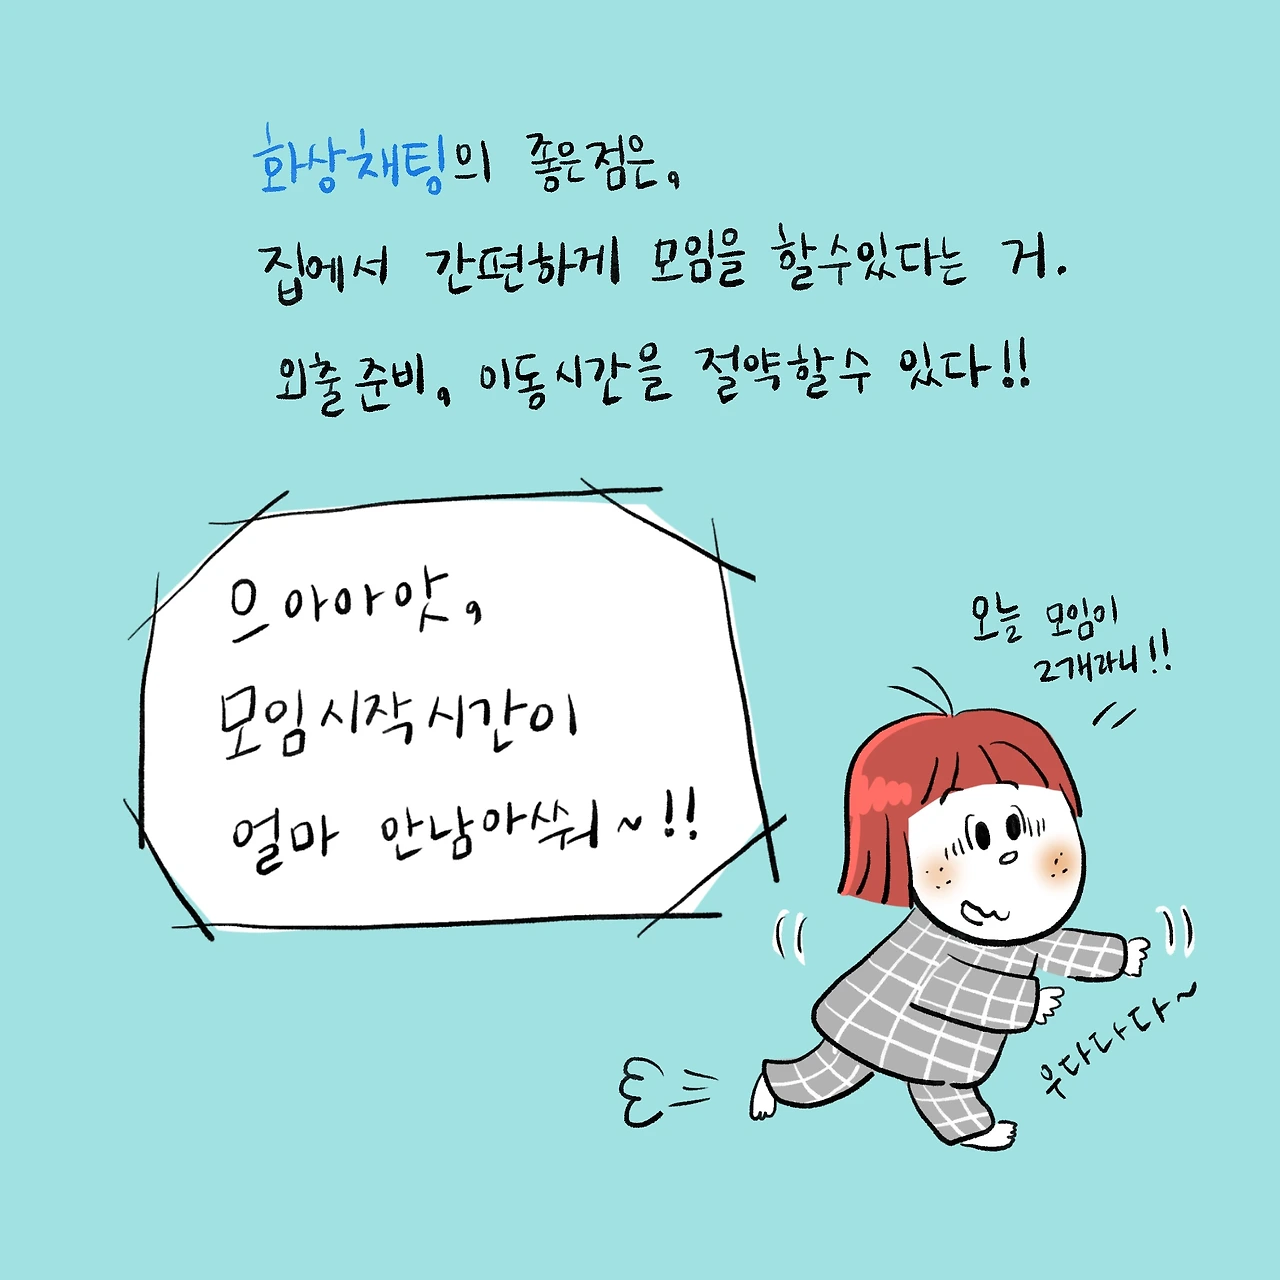 화상채팅의 좋은점은,
집에서 간편하게 모임을 할수있다는 거.
외출준비, 이동시간을 절약할수 있다!!
으아아앗,
모임시작시간이
얼마 안남아쒀~!!
오늘 모임이
2개라니!!
우다다다~